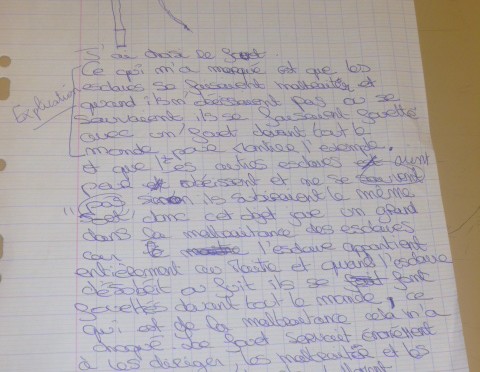 J'ai choisi ce fouet.
Ce qui m'a marqué est que les
esclaves se faisaient maltraités et
quand ils n'obéissaient pas ou se
sauvaient ils se faisaient fouetté
avec un fouet devant tout le
monde pour montrer l'exemple.
et que les autres esclaves aient
peur obéissent et ne se sauvent
pas sinon ils subiraient le même
sort donc cet objet joue un grand
dans la maltraitance des esclaves
car l'esclave appartient
entièrement au Maitre et quand l'esclave
désobéit ou fuit ils se font
fouettés devant tout le monde, ce
qui est de la maltraitance cela m'a
choqué. Le fouet servait énormément
à les diriger, les maltraités et les
Explication